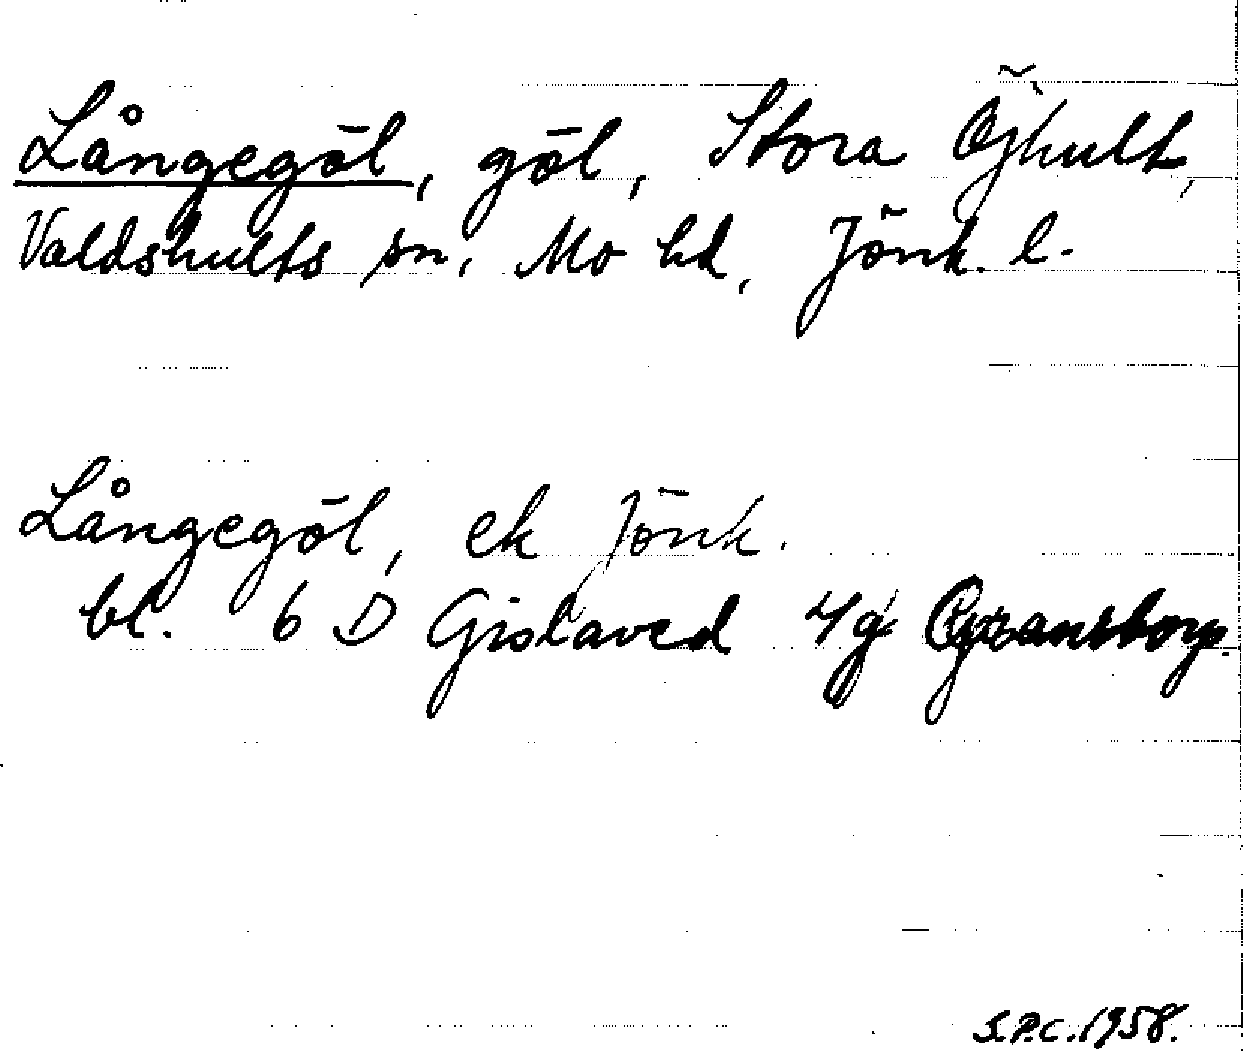 Långegöl, göl, Stora Öjhult,
Valdshults sn, Mo hd, Jönk. l.
Långegöl, ek Jönk.
bl. 6 D Gislaved 4g
S.P.C. 1958.